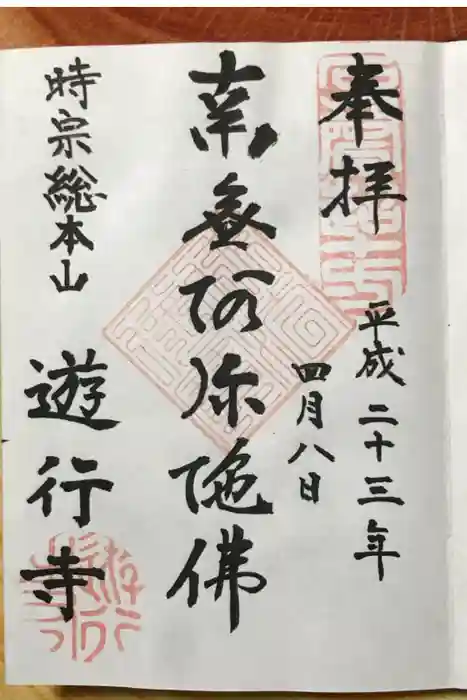 奉拝
平成二十三年
四月八日
南無阿弥陀佛
時宗総本山
遊行寺